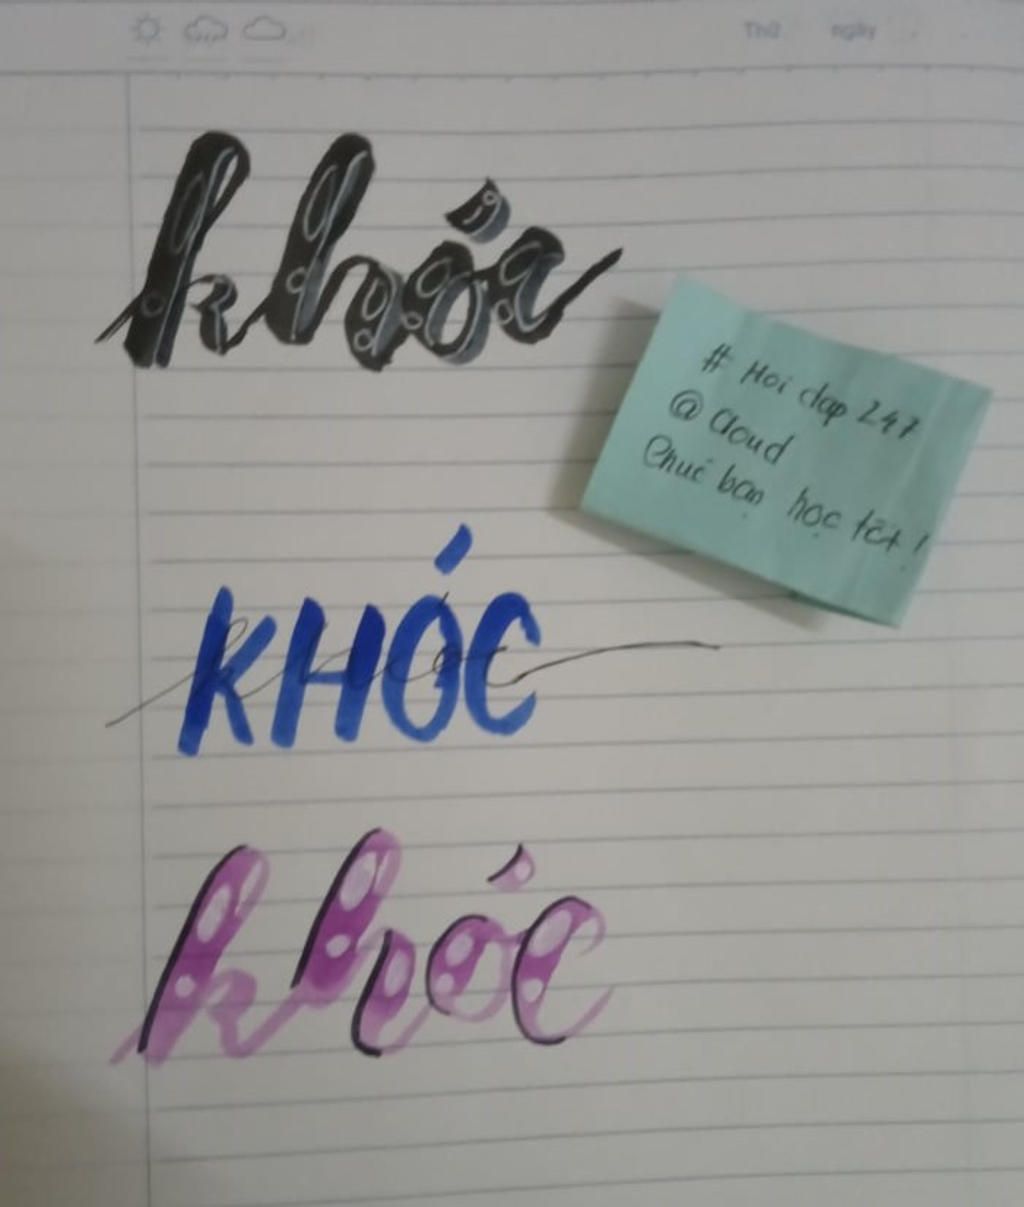 Thứ ngày
khóc
# Hoi dap 247
@ Cloud
Chúc bạn học tốt!
KHÓC
khóc